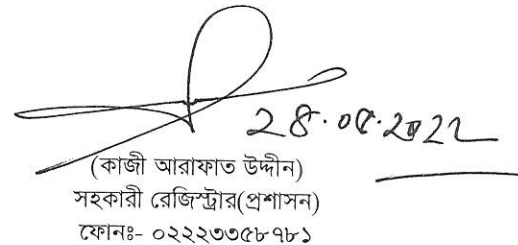 ২৪.০৫.২০২২
(কাজী আরাফাত উদ্দীন)
সহকারী রেজিস্ট্রার(প্রশাসন)
ফোনঃ- ০২২২৩৩৫৮৭৮১